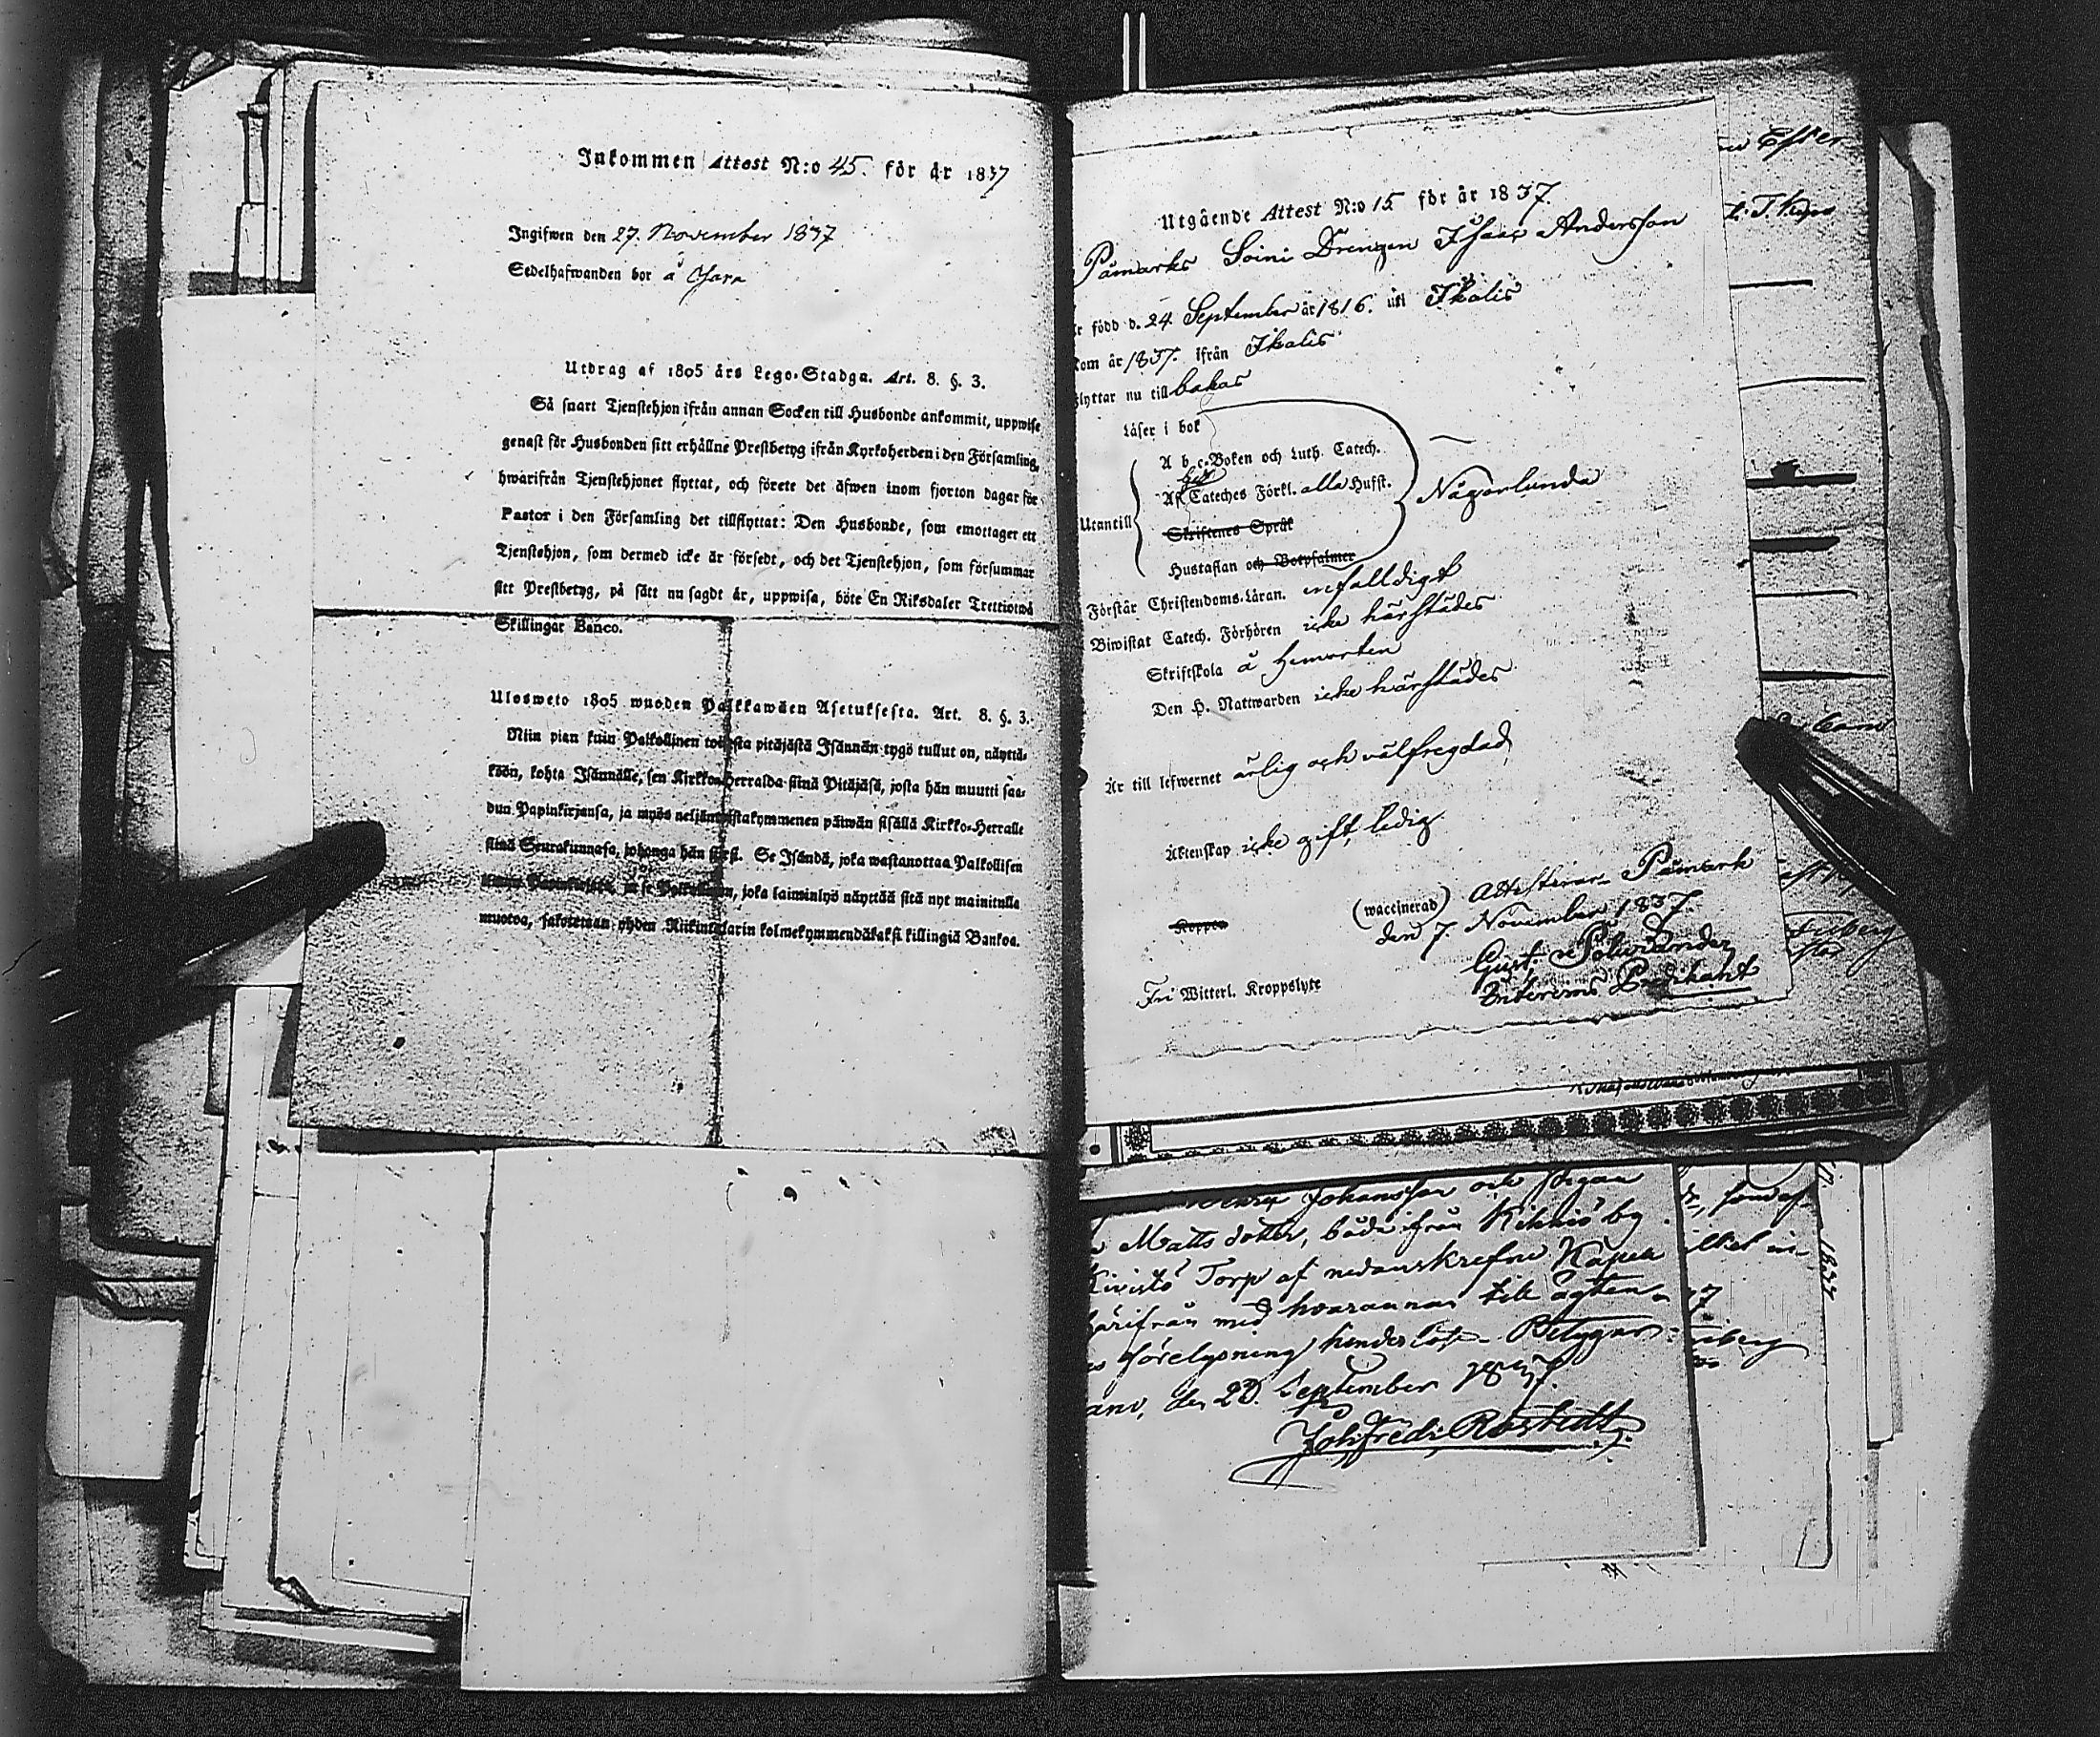 Inkommen Attest N:o 45. för år 1837
Ingifwen den 27. November 1837
Sedelhafwanden bor å
Utdrag af 1805 års Lego-Stadga. Art. 8. §. 3.
Så snart Tjenstehjon ifrån annan Socken till Husbonde ankommit, uppwise
genast för Husbonden sitt erhållne Prestbetyg ifrån Kyrkoherden i den Församling,
hwarifrån Tjenstehjonet flyttat, och förete det äfwen inom fjorton dagar för
Pastor i den Församling det tillflyttat: Den Husbonde, som emottager ett
Tjenstehjon, som dermed icke är försedt, och det Tjenstehjon, som försummar
sitt Prestbetyg, på sätt nu sagdt är, uppwisa, böte En Riksdaler Trettiotwå
Skillingar Banco.
Ulosweto 1805 wuoden Palkkawäen Asetuksesta. Art. 8. §. 3.
Niin pian kuin Palkollinen toisesta pitäjästä Isännän tygö tullut on, näyttä-
köön, kohta Isännälle, sen Kirkko-Herralda siinä Pitäjäsä, josta hän muutti saa-
dun Papinkirjansa, ja myös neljäntoistakymmenen päiwän sisällä Kirkko-Herralle
siinä Seurakunnasa, johonga hän siirsi. Se Isändä, joka wastanottaa Palkollisen
ilman Papinkirjata, ja se Palkollinen, joka laiminlyö näyttää sitä nyt mainitulla
muotoa, sakotetaan yhden Riikintalarin kolmekymmendäkaksi killingiä Bankoa.
Utgående Attest N:o 15 för år 1837.
Påmarks Soini Drengen Isaac Andersson
född d. 24 September år 1816. uti Ikalis
kom år 1837. ifrån Ikalis
flyttar nu till bakas
Läser i bok
A b c-Boken och Luth. Catech.
Af Cateches Förkl. alla Hufst.
Någorlunda
Utantill
Skriftenes Språk
Hustaflan och Botpsalmer
Förstår Christendoms-Läran. enfalldigt
Biwistat Catech. Förhören icke härstädes
Skriftskola å hemorten
Den H. Nattwarden icke härstädes
Är till lefwernet ärlig och välfregdad,
Äktenskap icke gift, ledig.
(waccinerad) Attesterar Påmark
Koppor
den 7. November 1837.
Gust. Polviander
Fri Witterl. Kroppslyte
Interims Predikant
Johansson och Pigan
Matts dotter, både ifrån Kihniö by
Kivistö Torp af nedanskrefne Kapell
härifrån med hvarannan till ägten-
förelysning hinderlöse Betygar
den 23. September 1837.
Joh. Fredr. Rostedt